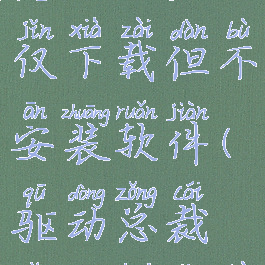 jǐn xià zài dàn bù
仅下载但不
ān zhuāng ruǎn jiàn
安装软件(
qū dòng zǒng cái
驱动总裁